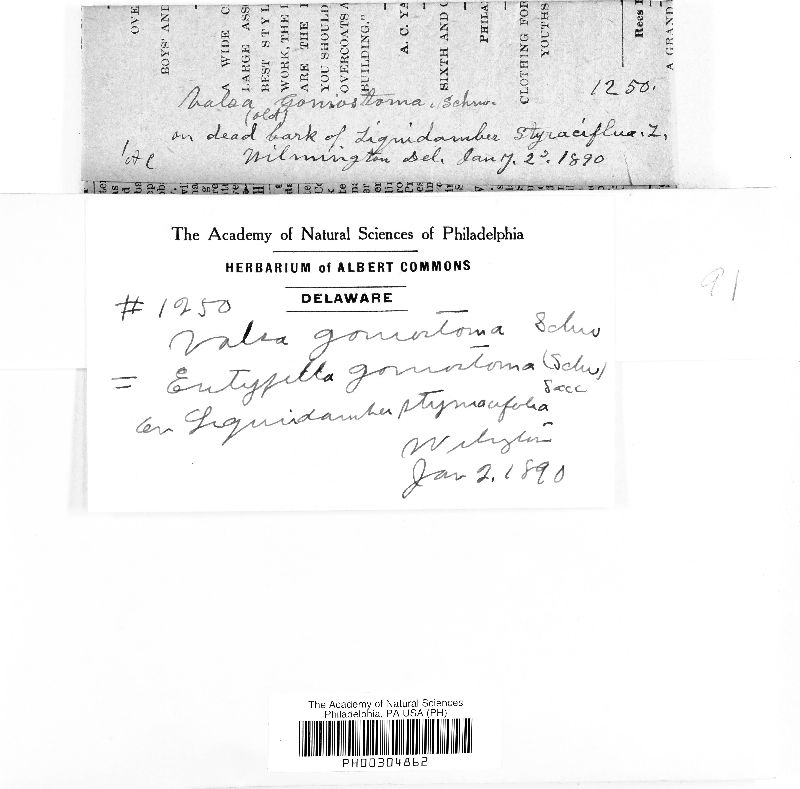 OVE
BOYS' AND
A WIDE C
LARGE ASS
BEST STYL
WORK, THE
ARE THE
YOU SHOULD
OVERCOATS A
BUILDING."
A. C. YA
SIXTH AND C
PHILA
CLOTHING FOR
YOUTHS
Rees
A GRAND
1250.
Valsa goniostoma, Schw.
(old)
on dead bark of Liquidamber Styraciflua. L.
Wilmington Del. Jany. 2d. 1890
The Academy of Natural Sciences of Philadelphia
HERBARIUM of ALBERT COMMONS
DELAWARE
# 1250
Valsa goniostoma Schw
= Eutypella goniostoma (Schw)
Sacc
on Liquidamber styracifolia
Jan 2. 1890
91
The Academy of Natural Sciences
Philadelphia, PA USA (PH)
PH00304862